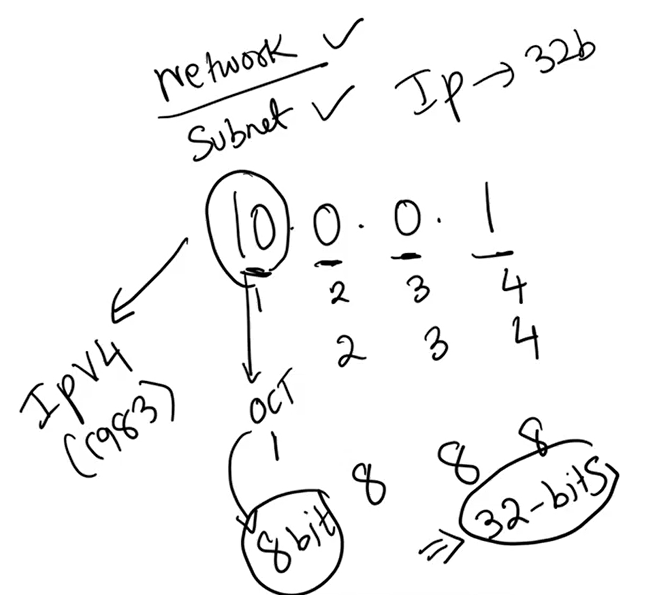 Network ✓
Subnet ✓
Ip → 32b
10.0.0.1
1 2 3 4
2 3 4
IpV4
(1983)
OCT
1
8 8 8
8bit
⇒ 32-bits